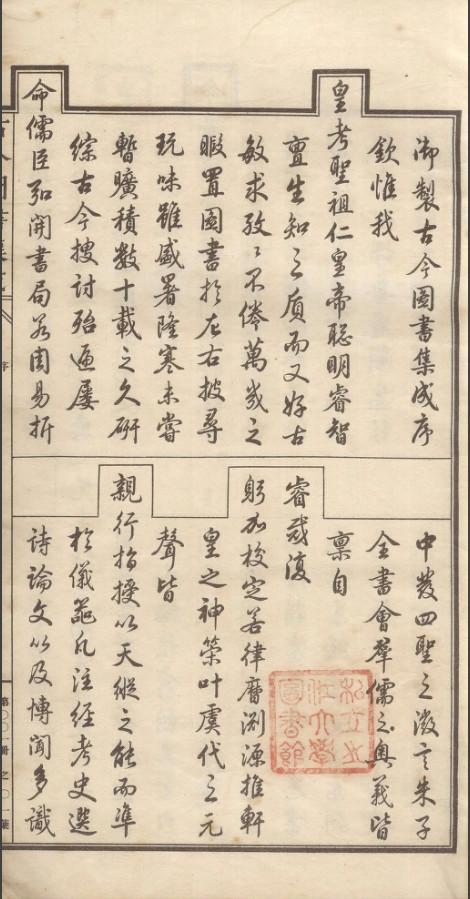 御製古今圖書集成序
欽惟我
皇考聖祖仁皇帝聰明睿智
亶生知之質而又好古
敏求孜〻不倦萬幾之
暇置圖書於左右披尋
玩味雖盛暑隆寒未嘗
暫曠積數十載之久研
綜古今搜討殆遍屢
命儒臣弘開書局若周易折
中發四聖之微言朱子
全書會羣儒之奧義皆
稟自
睿裁復
躬加校定若律曆淵源推軒
皇之神策叶虞代之元
聲皆
親行指授以天縱之能而準
於儀器凡注經考史選
詩論文以及博聞多識
私立之
江大學
圖書館
序
第〇〇一冊之〇一葉